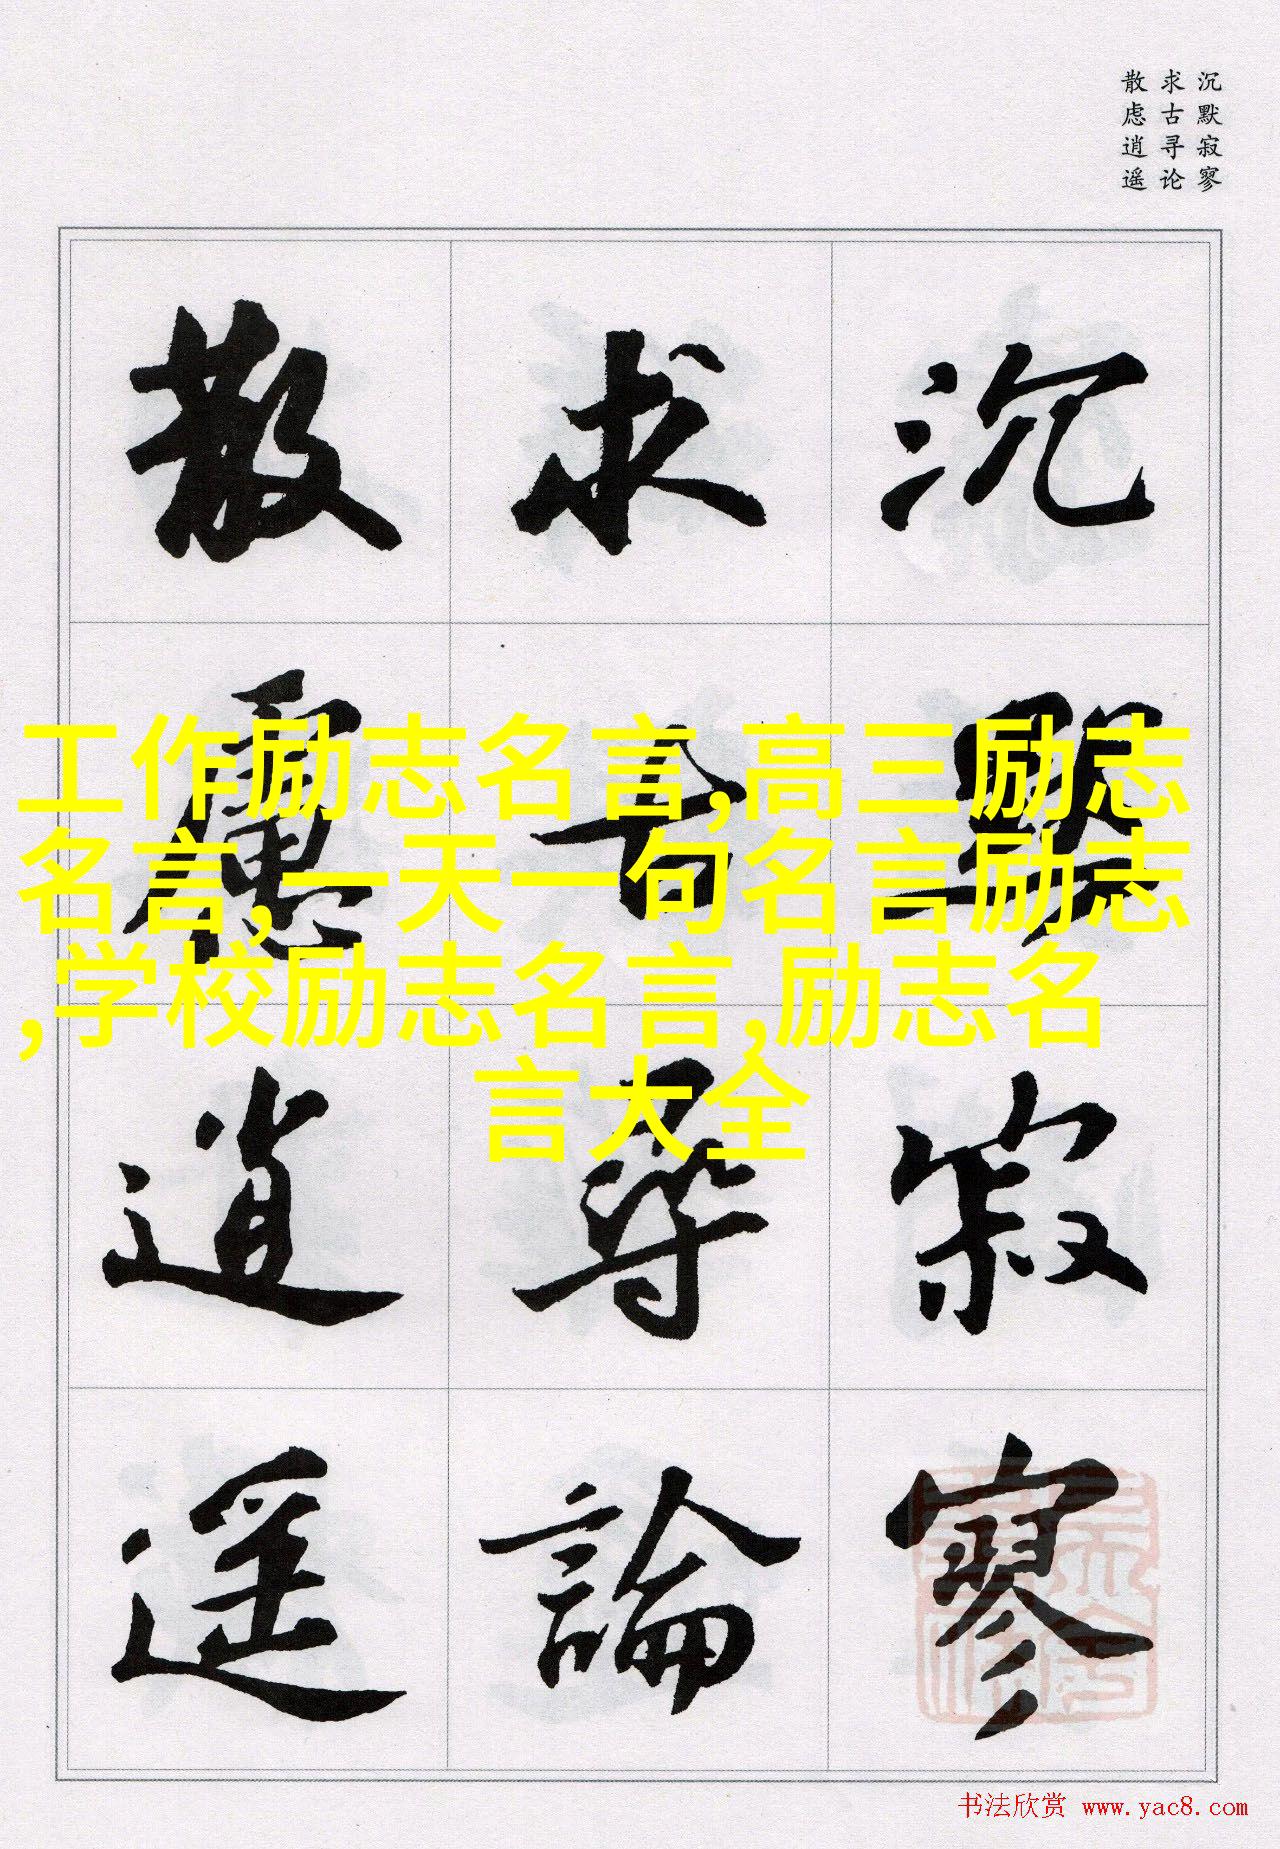 沉默寂寥
求古寻论
散虑逍遥
沉默寂寥
求古尋論
散慮逍遥
工作励志名言,高三励志
名言,一天一句名言励志
,学校励志名言,励志名
言大全
书法欣赏 www.yac8.com